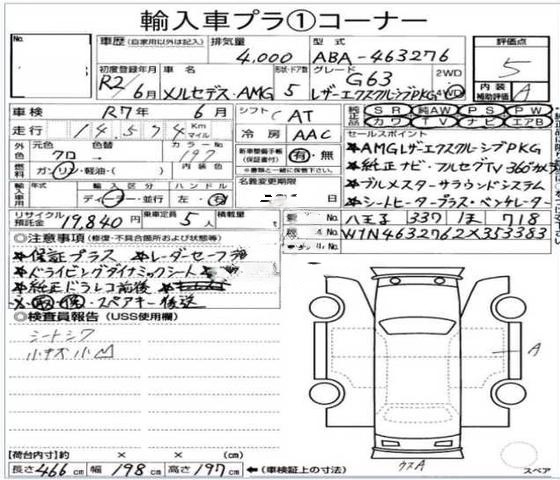 輸入車プラ①コーナー
No.
車歴 (自家用以外は記入)
排気量
4,000
型式
ABA-463276
評価点
5
初度登録年月
R2年6月
車名
メルセデス・AMG
形状・ドア数
5
グレード
G63
レザーエクスクルーシブPKG
2WD
4WD
内装
補助評価
A
車検
R7年 6月
シフト
AT
純正品
SR 純AW PS PW
カワ TV ナビ エアB
走行
14,574
Km
マイル
冷房
AAC
セールスポイント
外色
元色
クロ
色替
カラーNo
197
内装色
新車整備手帳
(保証書付)
有・無
※書類と一緒に保管下さい。
★AMGレザエクスクルーシブPKG
燃料
ガソリン・軽油・( )
★純正ナビ・フルセグTV360°カメラ
輸入車用
年式
輸入区分
ディーラー・並行
ハンドル
左・右
名義変更期限
月
日
★ブルメスターサラウンドシステム
★シートヒータープラス・ベンチレーター
リサイクル預託金
19,840円
乗車定員
5人
積載量
八王子 339 718
W1N4632762X353383
◎注意事項 (修復・不具合箇所および状態等)
★保証プラス ★レーダーセーフティ
★ドライビングダイナミックシート
★純正ドラレコ前後
取 保 スペアキー後送
◎検査員報告 (USS使用欄)
シートシワ
小キズ小凹
A
【荷台内寸】約 × × (cm)
長さ466cm 幅198cm 高さ197cm ←(車検証上の寸法)
ウスA
スペア